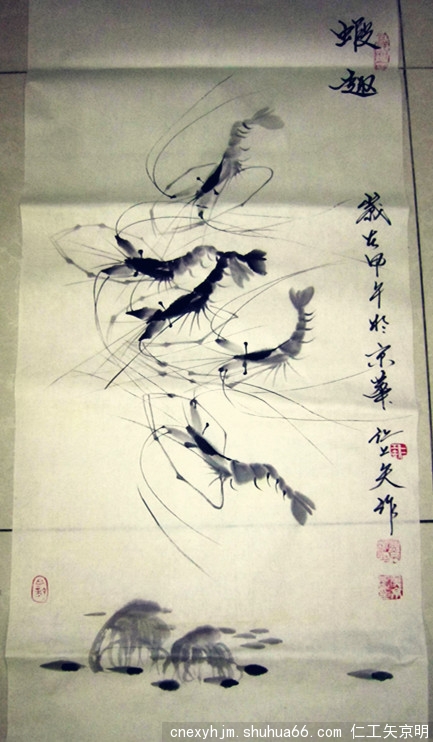 蝦趣
歲在甲午於京華
仁工矢作
cnexyhjm.shuhua66.com 仁工矢京明